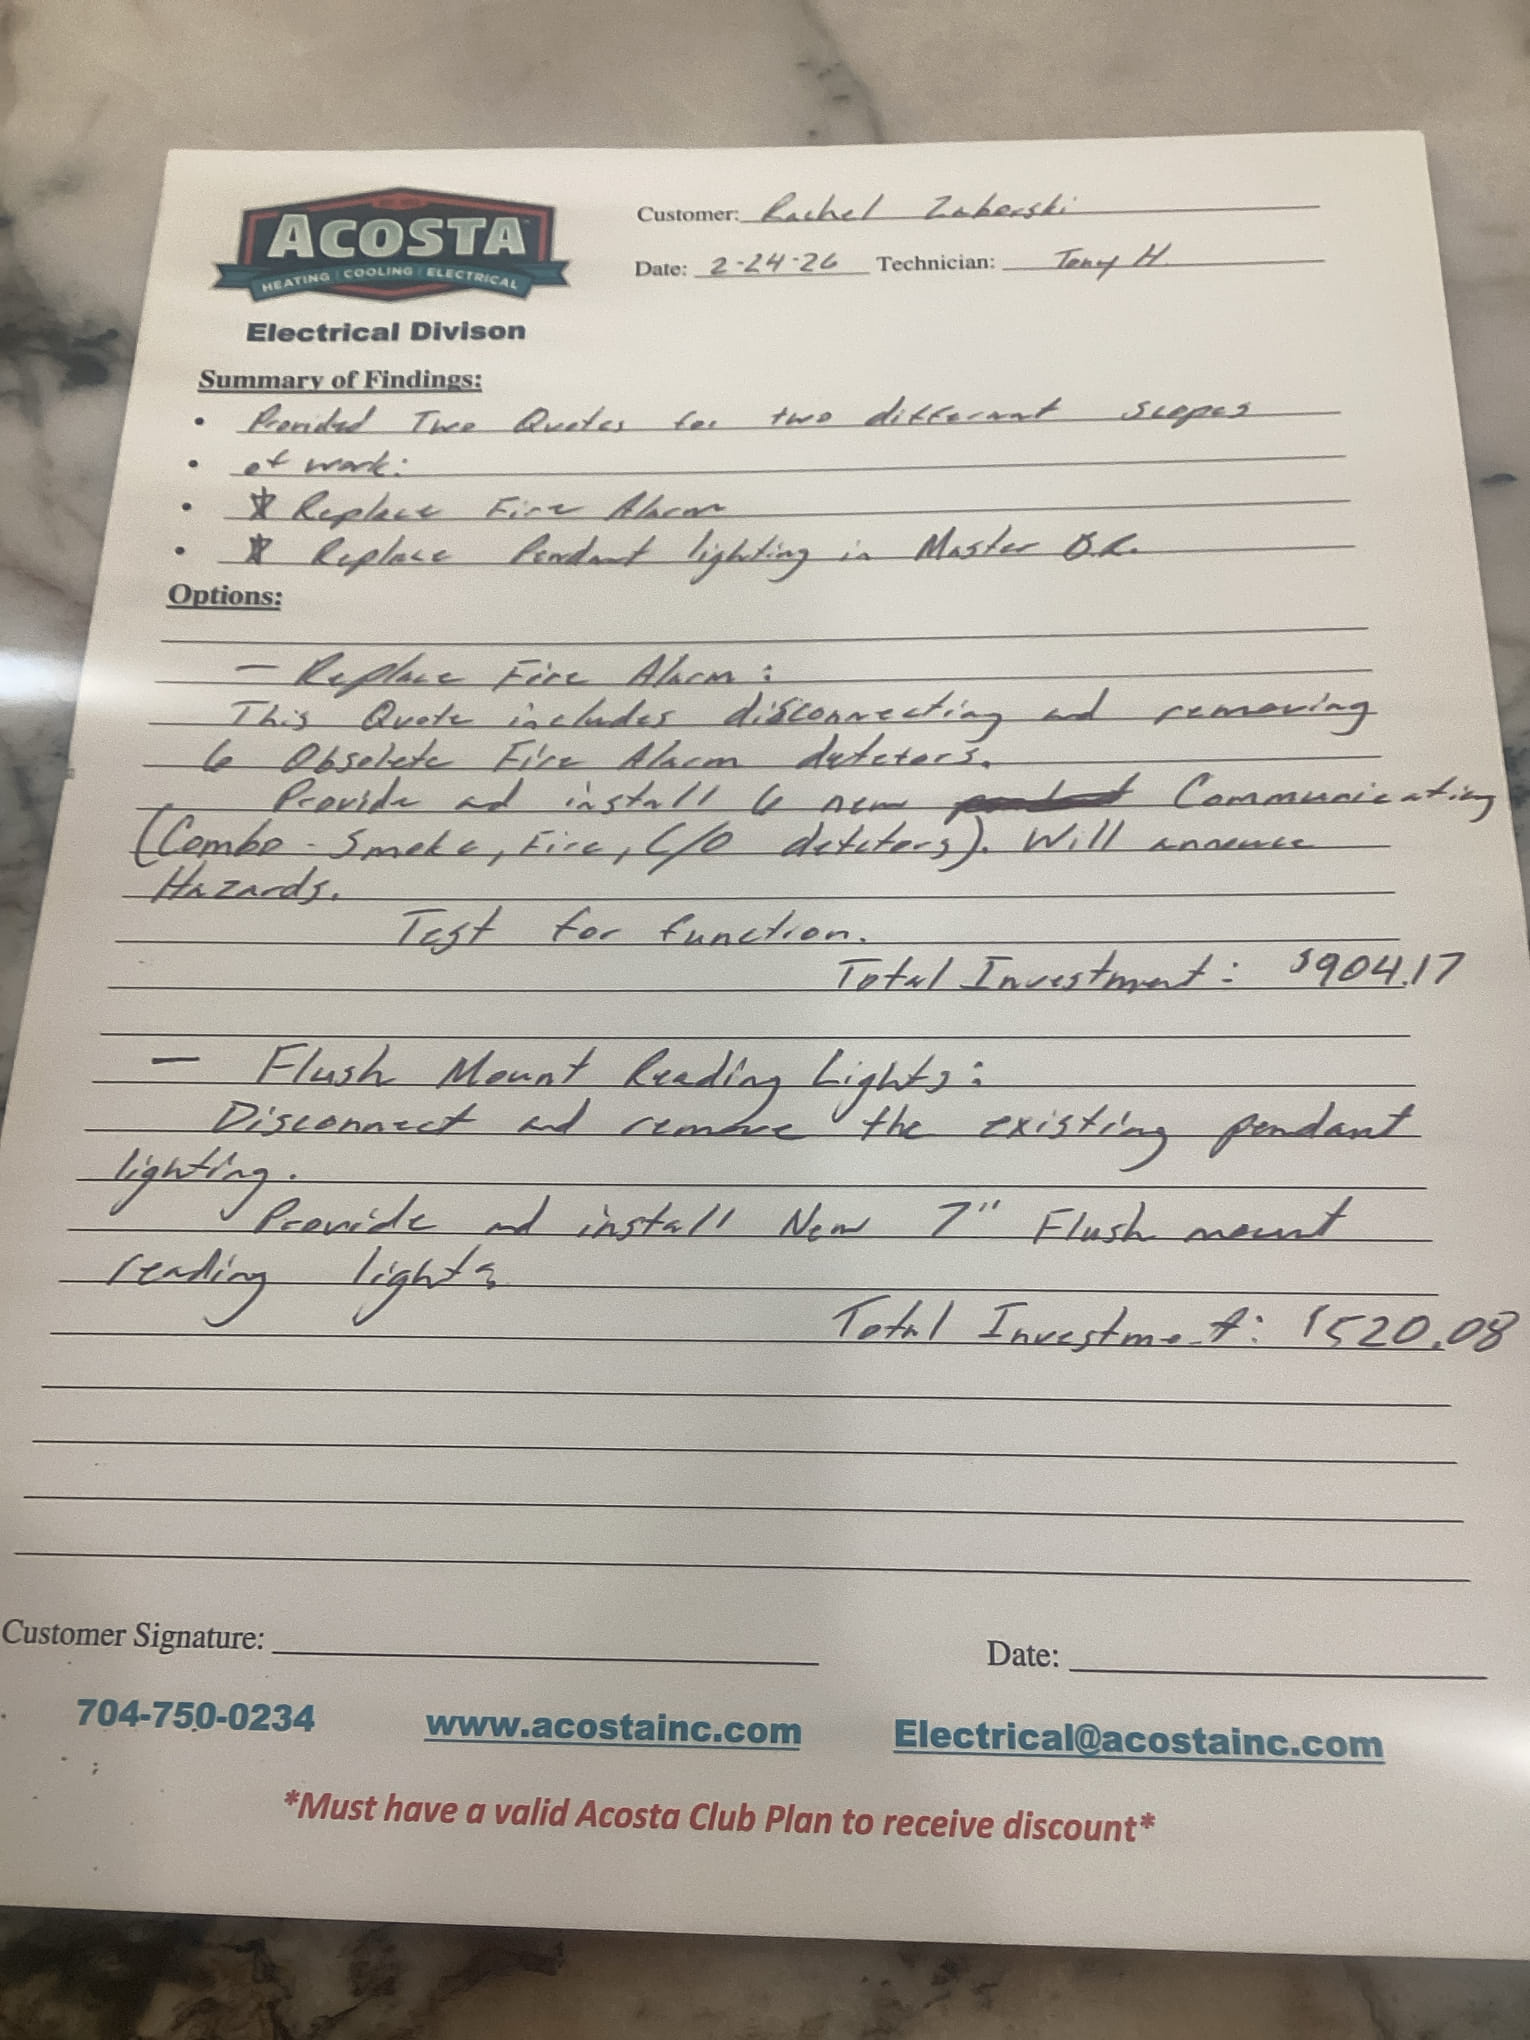 ACOSTA
HEATING | COOLING | ELECTRICAL
Electrical Divison
Customer: Rachel Zaborski
Date: 2-24-26 Technician: Tony H.
Summary of Findings:
• Provided Two Quotes for two different scopes
• of work:
• * Replace Fire Alarm
• * Replace Pendant lighting in Master B.R.
Options:
- Replace Fire Alarm:
This Quote includes disconnecting and removing
6 Obsolete Fire Alarm detetors.
Provide and install 6 new Communicating
(Combo - Smoke, Fire, C/O detetors). Will annouce
Hazards.
Test for function.
Total Investment: $904.17
- Flush Mount Reading Lights:
Disconnect and remove the existing pendant
lighting.
Provide and install New 7" Flush mount
reading lights
Total Investment: $520.08
Customer Signature:
Date:
704-750-0234 www.acostainc.com Electrical@acostainc.com
*Must have a valid Acosta Club Plan to receive discount*